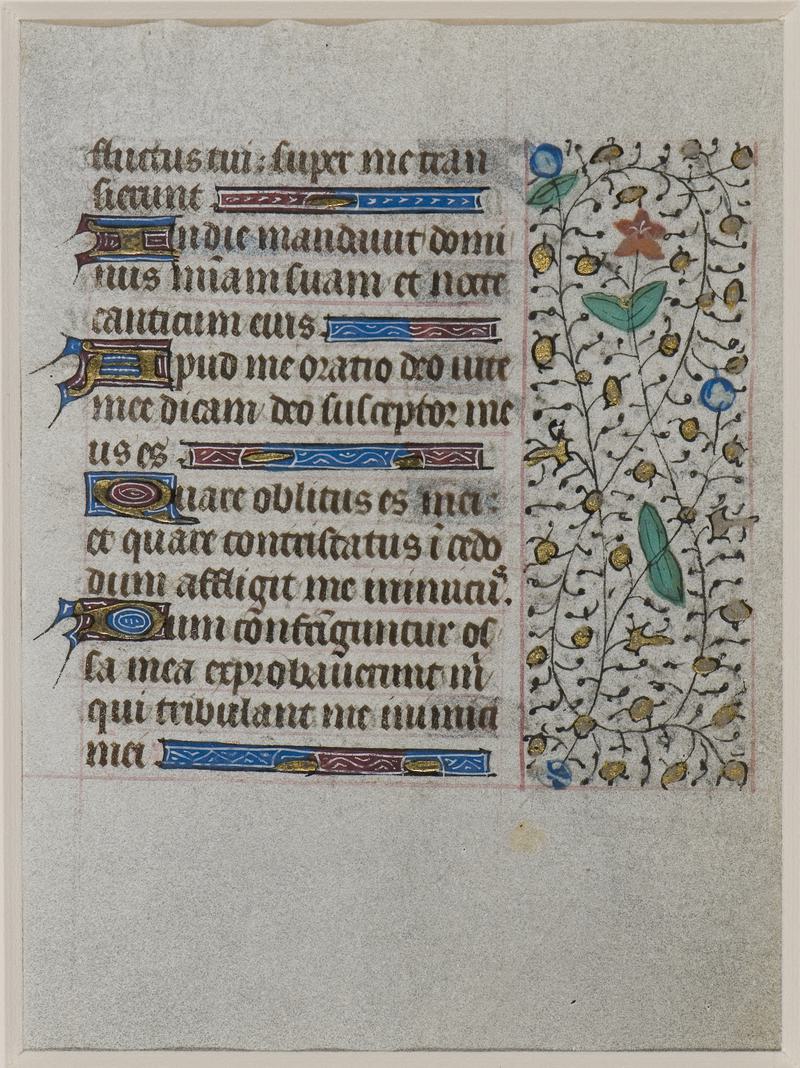 fluctus tui: super me tran
sierunt
In die mandavit domi
nus mīam suam et nocte
canticum eius.
Apud me oratio deo vite
mee dicam deo susceptor me
us es.
Quare oblitus es mei:
et quare contristatus ī cedo
dum affligit me inimicus.
Dum cōfrīguntur os
sa mea exprobaverunt m̄
qui tribulant me inimici
mei